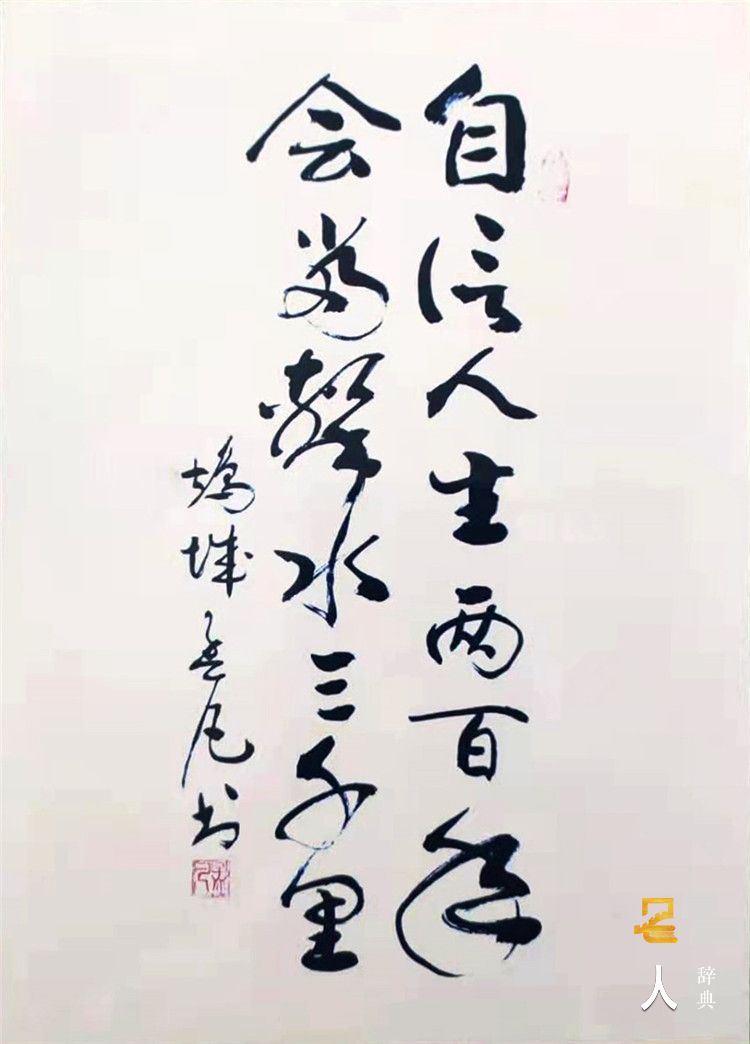 自信人生两百年
会當擊水三千里
城凡书
名人
辞典